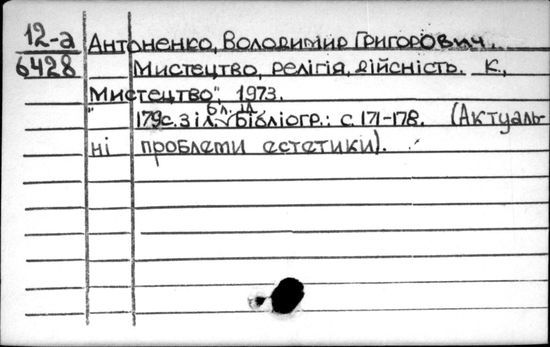 12-а Антоненко, Володимир Григорович.
6428 Мистецтво, релігія, дійсність. К.,
"Мистецтво", 1973.
179с. з іл. Бібліогр.: с. 171-178. (Актуаль-
ні проблеми естетики).